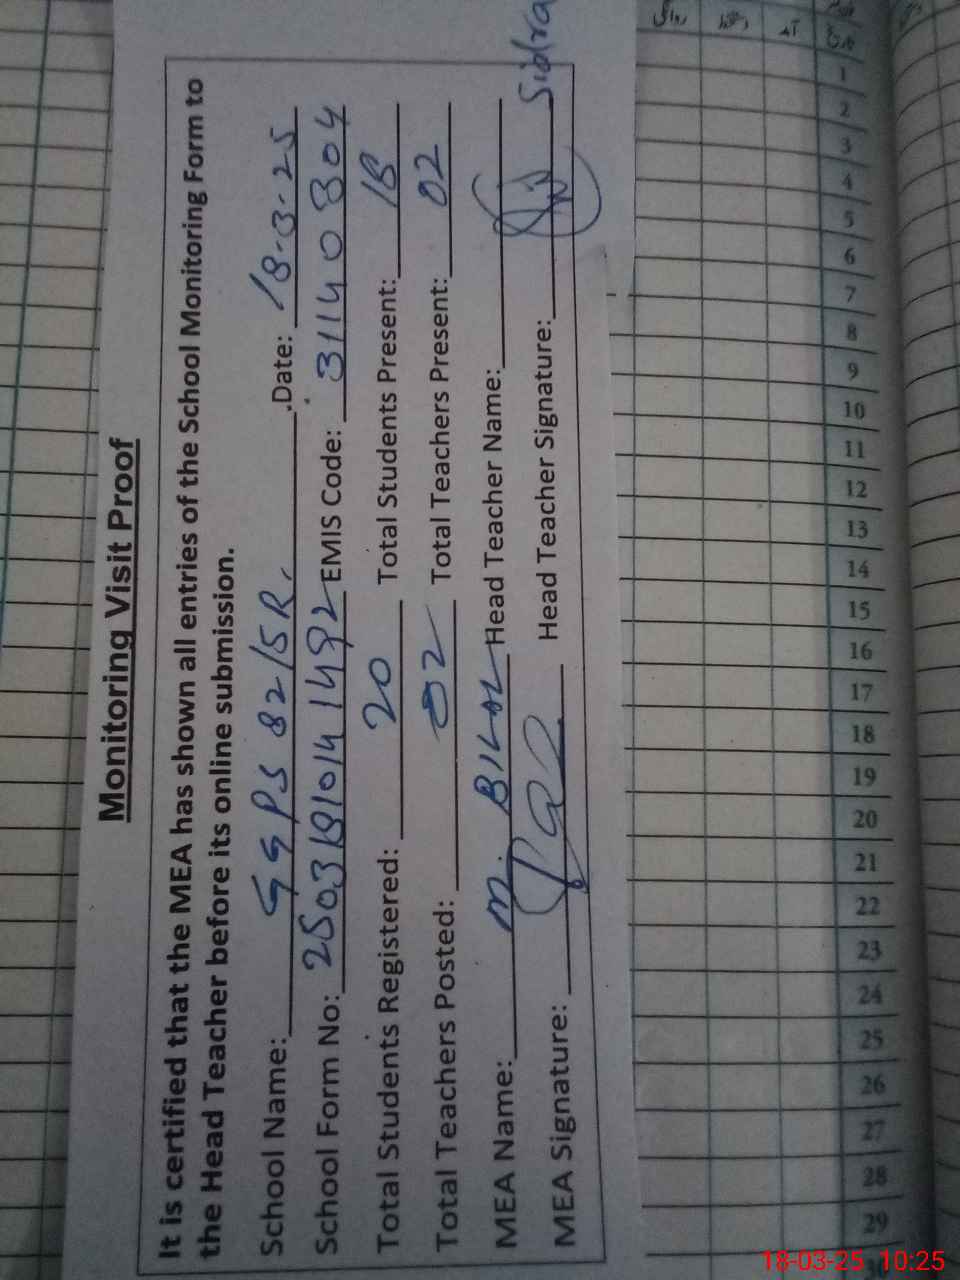 Monitoring Visit Proof
It is certified that the MEA has shown all entries of the School Monitoring Form to
the Head Teacher before its online submission.
School Name: GGPS 82/5R. Date: 18-3-25
School Form No: EMIS Code: 31140304
Total Students Registered: 20 Total Students Present: 18
Total Teachers Posted: 02 Total Teachers Present: 02
MEA Name: M. BILAL Head Teacher Name: Sidra
MEA Signature: Head Teacher Signature:
تاریخ آمد دستخط روانگی
1
2
3
4
5
6
7
8
9
10
11
12
13
14
15
16
17
18
19
20
21
22
23
24
25
26
27
28
29
30
18-03-25 10:25